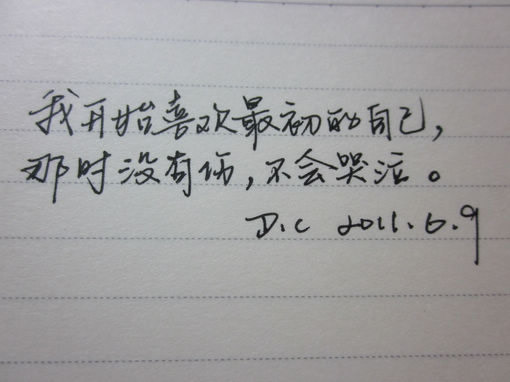 我开始喜欢最初的自己，
那时没有伤，不会哭泣。
D.C 2011.6.9